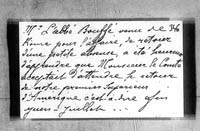 Mr l'abbé Bouffé venu de
Rome pour l'affaire, de retour
d'une petite absence, a été heureux
d'apprendre que Monsieur le Comte
acceptait d'attendre le retour
de notre premier Supérieur
d'Amérique c'est-à-dire
Juillet